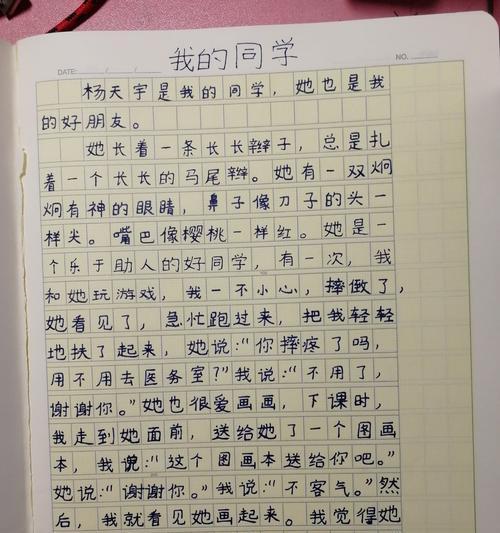 我的同学
DATE: / /
NO.
杨天宇是我的同学，她也是我
的好朋友。
她长着一条长长辫子，总是扎
着一个长长的马尾辫。她有一双炯
炯有神的眼睛，鼻子像刀子的头一
样尖。嘴巴像樱桃一样红。她是一
个乐于助人的好同学，有一次，我
和她玩游戏，我一不小心，摔倒了，
她看见了，急忙跑过来，把我轻轻
地扶了起来，她说：“你摔疼了吗，
用不用去医务室？”我说：“不用了，
谢谢你。”她也很爱画画，下课时，
我走到她面前，送给她了一个图画
本，我说：“这个图画本送给你吧。”
她说：“谢谢你。”我说：“不客气。”然
后，我就看见她画起来。我觉得她